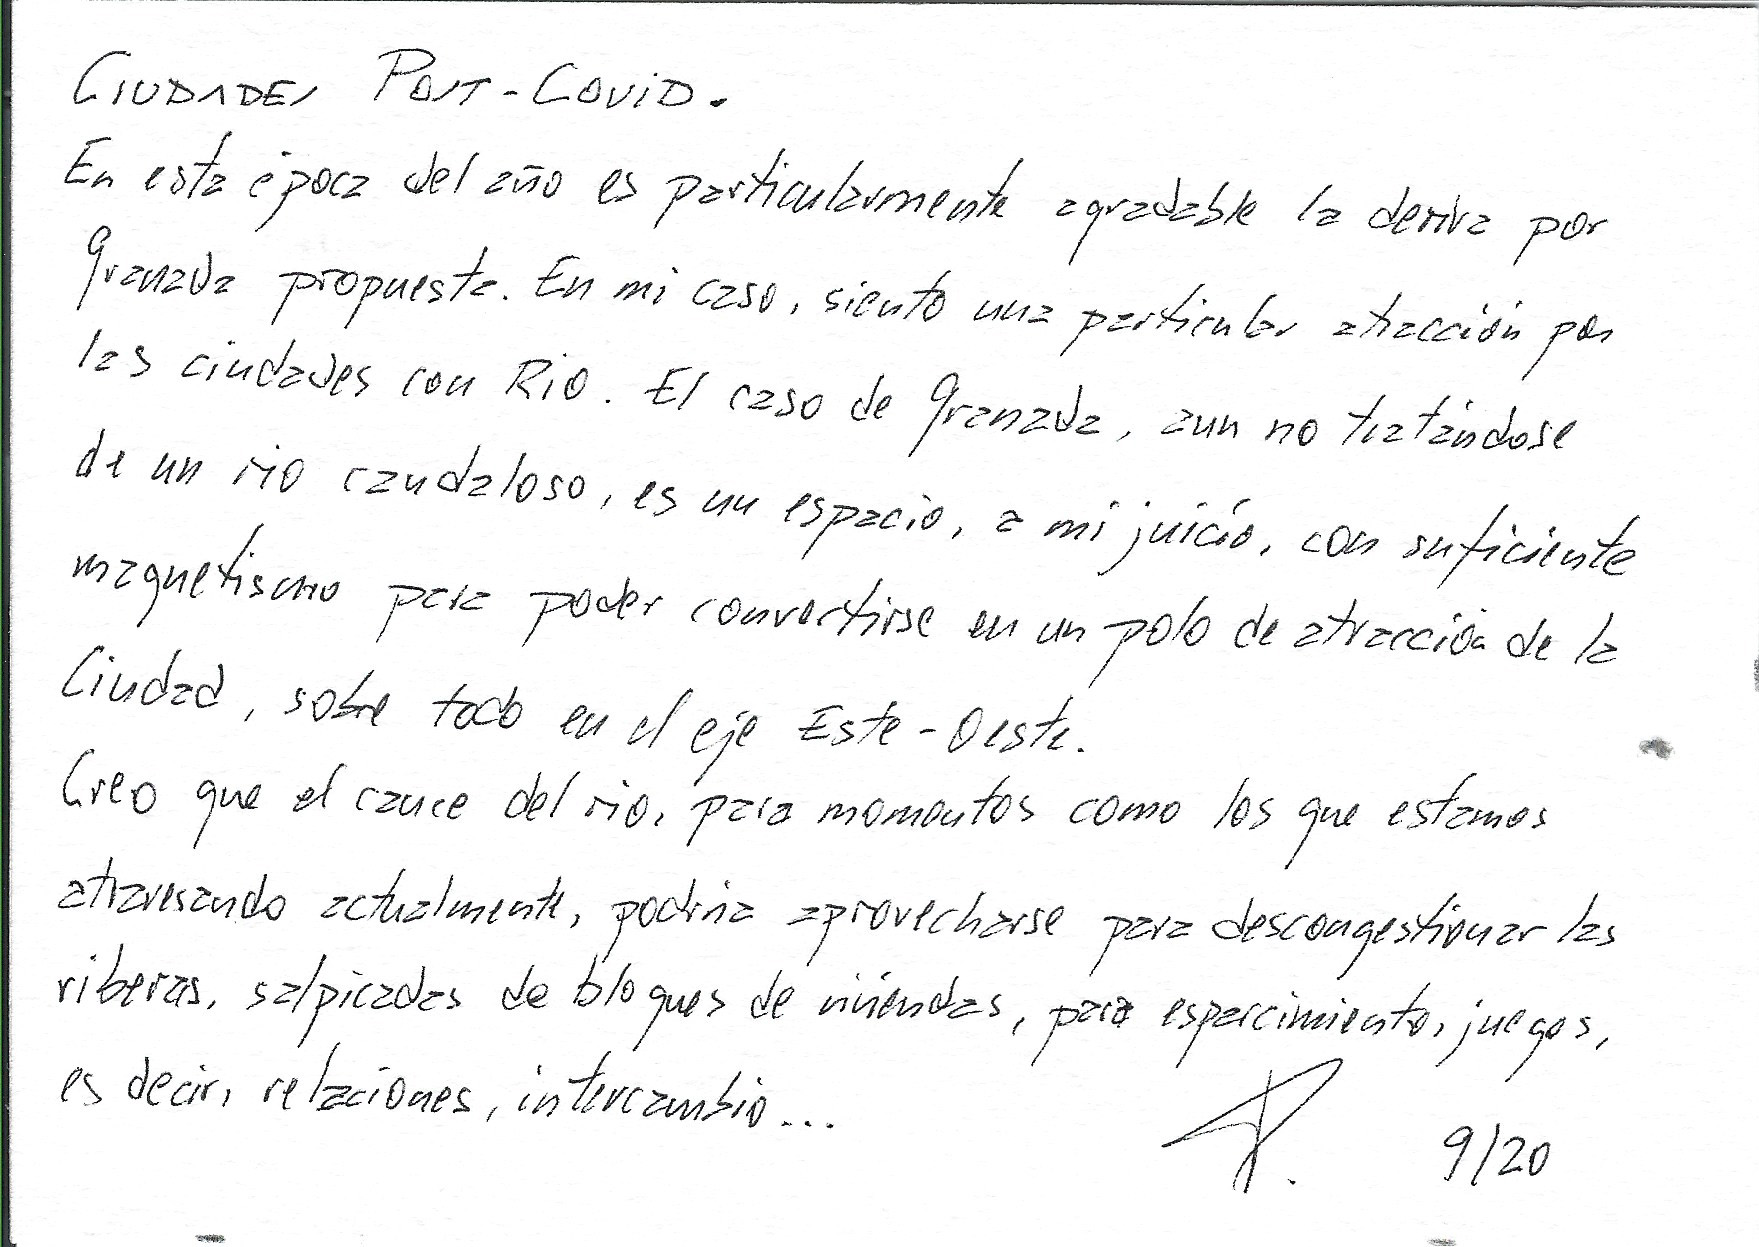 CIUDADES POST-COVID.
En esta época del año es particularmente agradable la deriva por
Granada propuesta. En mi caso, siento una particular atracción por
las ciudades con Rio. El caso de Granada, aun no tratándose
de un rio caudaloso, es un espacio, a mi juicio, con suficiente
magnetismo para poder convertirse en un polo de atracción de la
Ciudad, sobre todo en el eje Este-Oeste.
Creo que el cauce del rio, para momentos como los que estamos
atravesando actualmente, podria aprovecharse para descongestionar las
riberas, salpicadas de bloques de viviendas, para esparcimiento, juegos,
es decir, relaciones, intercambio...
9/20